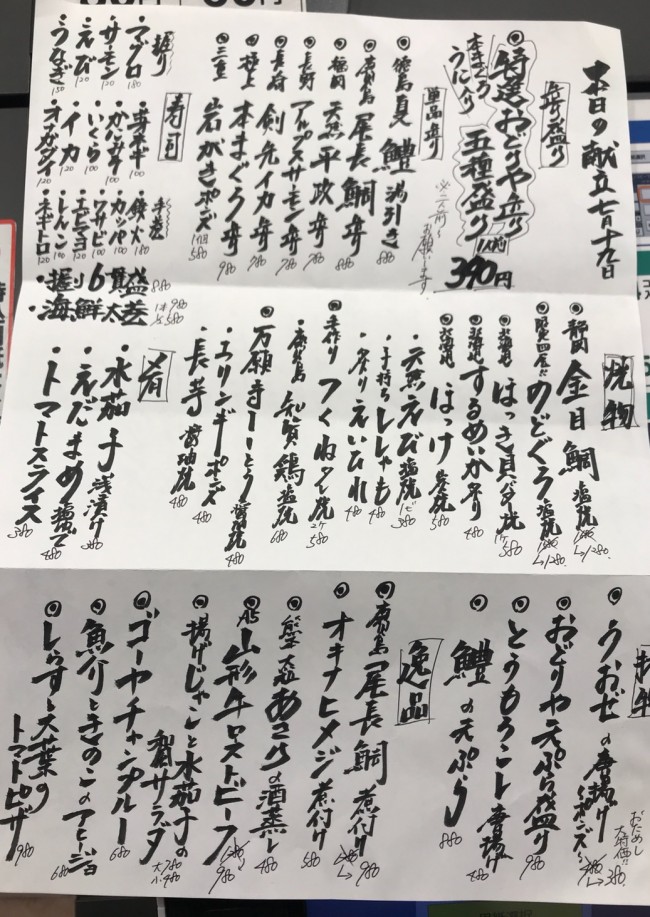 本日の献立 七月十九日
舟盛り
◎特選おどりや舟り
五種盛り
1人前 390円
本まぐろ
うに入り
単品舟り
◎徳島 夏 鱧 湯引き 880
◎鹿児島 尾長鯛舟 880
◎福岡 天然平政舟 780
◎長野 アルプスサーモン舟 780
◎長崎 剣先イカ舟 780
◎極上 本まぐろ舟 980
◎三重 岩がきポンズ 1個 580
寿司
握り
・マグロ 180
・サーモン 120
・えび 120
・うなぎ 150
・芽ネギ 100
・かんぴょう 100
・いくら 100
・イカ 120
・オナガダイ 120
手巻
・鉄火 180
・カッパ 100
・ワサビ 100
・エビマヨ 120
・しんこ 100
・ネギトロ 120
・握り6貫盛 880
・海鮮太巻 1本 980 ½ 580
焼物
◎静岡 金目鯛 塩焼 →1280
◎のどぐろ 塩焼 →1280
◎北海道 ほっき貝バタ焼 1ケ 580
◎北海道 するめいか舟り 480
◎北海道 ほっけ 塩焼 580
・天然えび塩焼 1ピ 380
・子持ちししゃも 480
・炙りえいひれ 480
◎手作り つくねタレ焼 2ケ 580
・鹿児島 知覧鶏塩焼 680
◎万願寺とうとう醤油焼 480
・エリンギポンズ 480
・長芋 醤油焼 480
肴
・水茄子 浅漬け 380
・えだまめ 塩ゆで 480
・トマトスライス 380
揚物
◎うおぜの唐揚げ
〜ポンズ〜
おためし
大特価!!
480→380
◎おどりや天ぷら盛り 980
◎とうもろこし唐揚げ 480
◎鱧の天ぷら 880
逸品
◎鹿児島 尾長鯛 煮付け 980
◎オキナヒメジ 煮付け →580
◎熊本 大粒 あさりの酒蒸し 480
◎A5 山形牛ローストビーフ 980
◎揚げじゃこと水茄子の
和サラダ 大 780 小 480
◎ゴーヤチャンプルー 680
◎魚介ときのこのアヒージョ 680
◎しらすと大葉の
トマトピザ 980